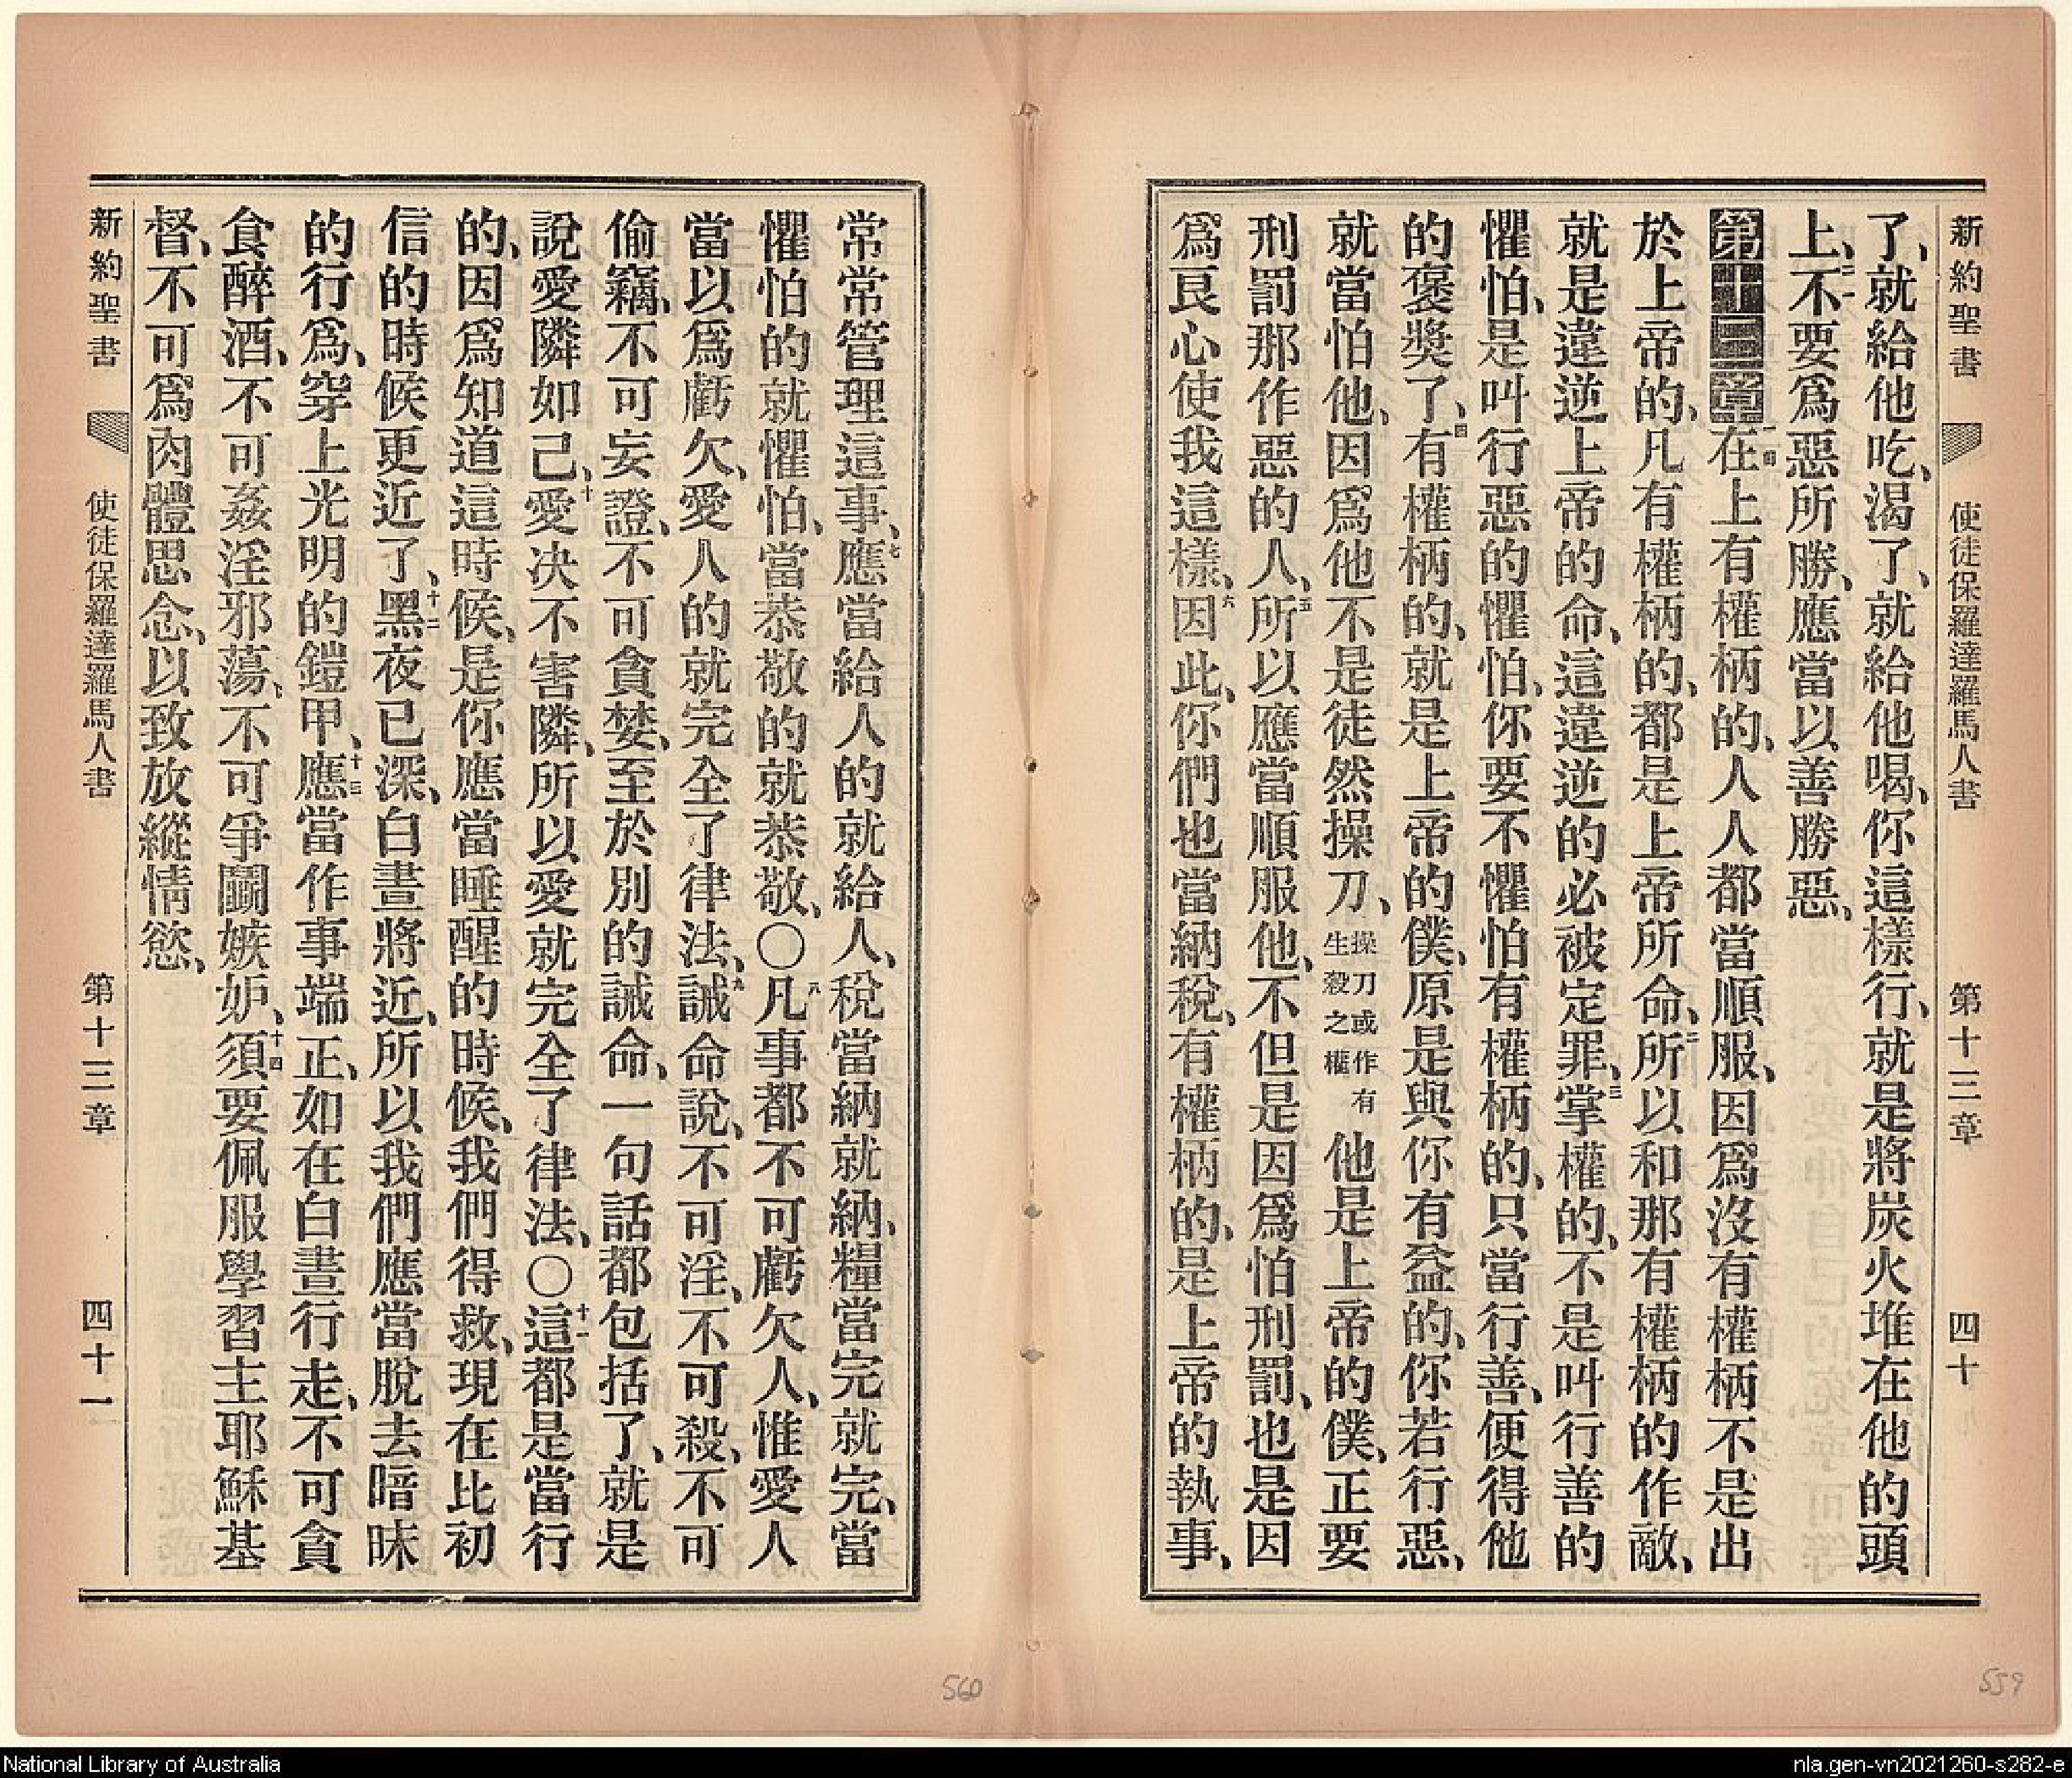 新約聖書 使徒保羅達羅馬人書 第十三章 四十
了、就給他吃、渴了、就給他喝、你這樣行、就是將炭火堆在他的頭
上、二一不要爲惡所勝、應當以善勝惡、
第十三章一在上有權柄的、人人都當順服、因爲沒有權柄不是出
於上帝的、凡有權柄的、都是上帝所命、二所以和那有權柄的作敵、
就是違逆上帝的命、這違逆的必被定罪、三掌權的、不是叫行善的
懼怕、是叫行惡的懼怕、你要不懼怕有權柄的、只當行善、便得他
的褒獎了、四有權柄的、就是上帝的僕、原是與你有益的、你若行惡、
就當怕他、因爲他不是徒然操刀、操刀或作有生殺之權他是上帝的僕、正要
刑罰那作惡的人、五所以應當順服他、不但是因爲怕刑罰、也是因
爲良心使我這樣、六因此、你們也當納稅、有權柄的、是上帝的執事、
常常管理這事、七應當給人的就給人、稅當納就納、糧當完就完、當
懼怕的就懼怕、當恭敬的就恭敬、〇八凡事都不可虧欠人、惟愛人
當以爲虧欠、愛人的就完全了律法、九誡命說、不可淫、不可殺、不可
偷竊、不可妄證、不可貪婪、至於別的誡命、一句話都包括了、就是
說愛隣如己、十愛決不害隣、所以愛就完全了律法、〇十一這都是當行
的、因爲知道這時候、是你應當睡醒的時候、我們得救、現在比初
信的時候更近了、十二黑夜已深、白晝將近、所以我們應當脫去暗昧
的行爲、穿上光明的鎧甲、十三應當作事端正、如在白晝行走、不可貪
食醉酒、不可姦淫邪蕩、不可爭鬭嫉妒、十四須要佩服學習主耶穌基
督、不可爲肉體思念、以致放縱情慾、
新約聖書 使徒保羅達羅馬人書 第十三章 四十一
560
559
National Library of Australia
nla.gen-vn2021260-s282-e